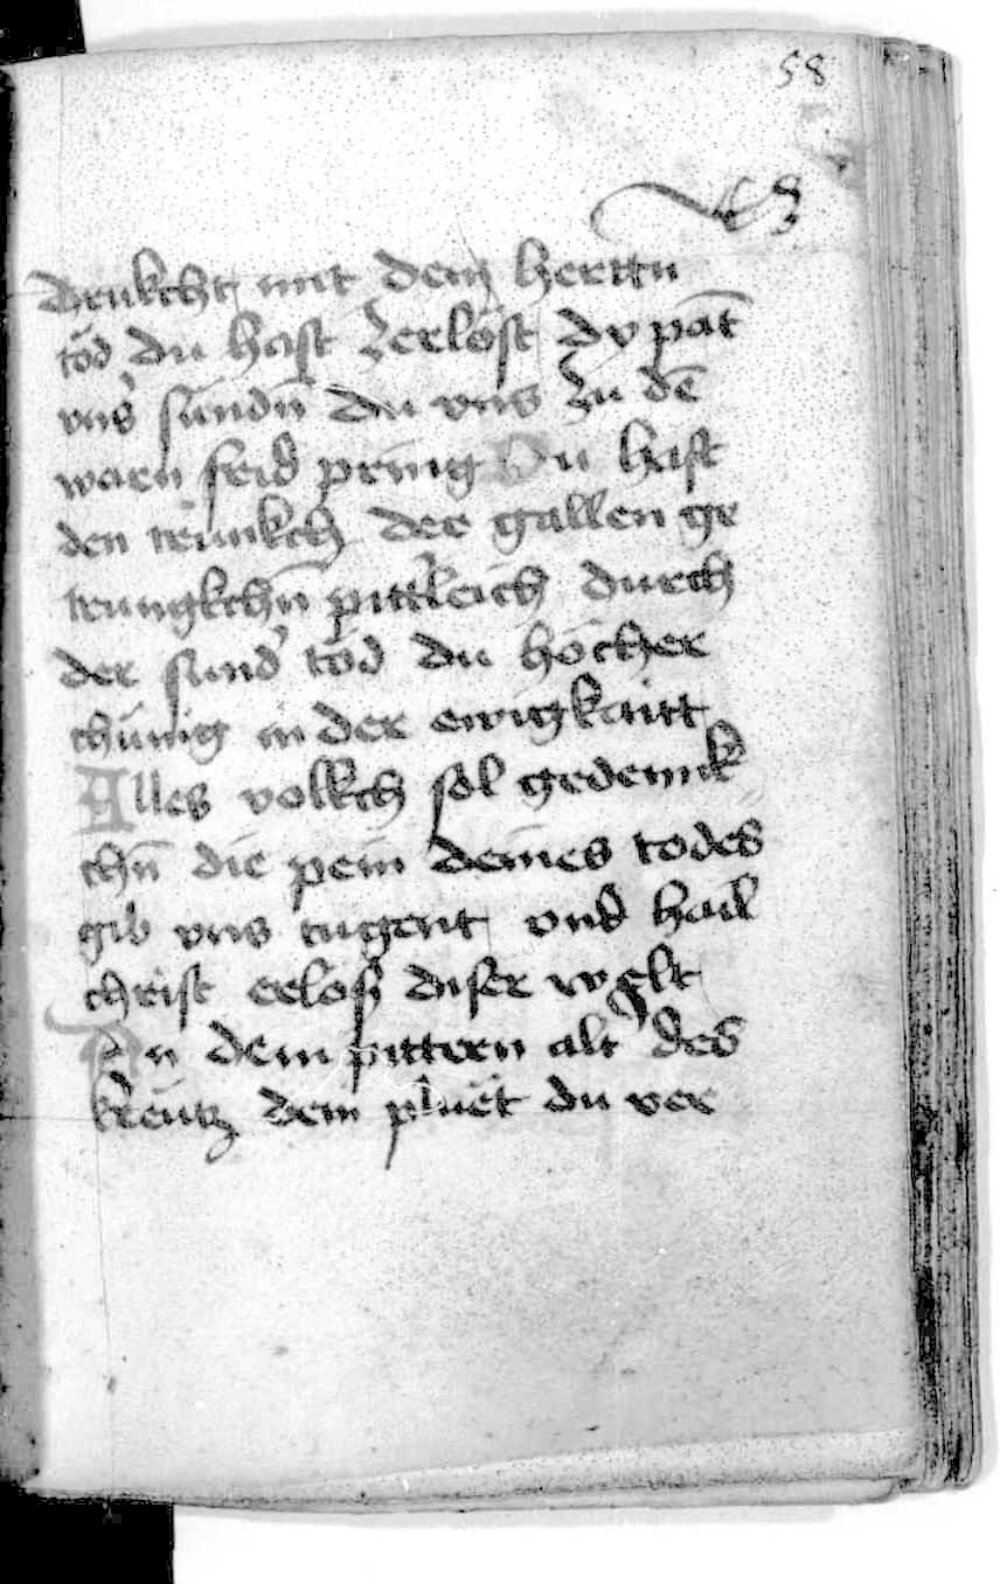 58
drukcht mit dem herttn
tod du hast zerlost dy pāt
vns᾽ sundn̄ du vns zu dē
warn frid pring Du hast
den trunkch der gallen ge
trungkchn̄ pittrleich durch
der sund᾽ tod du höcher
chünig in der ewigkaitt
Alles volkch sol gedennk
chn̄ die pein deines todes
gib vns tugent vnd hail
christ erlos diser welt
An dem pittern alt᾽ des
kreutz dem pluet du ver